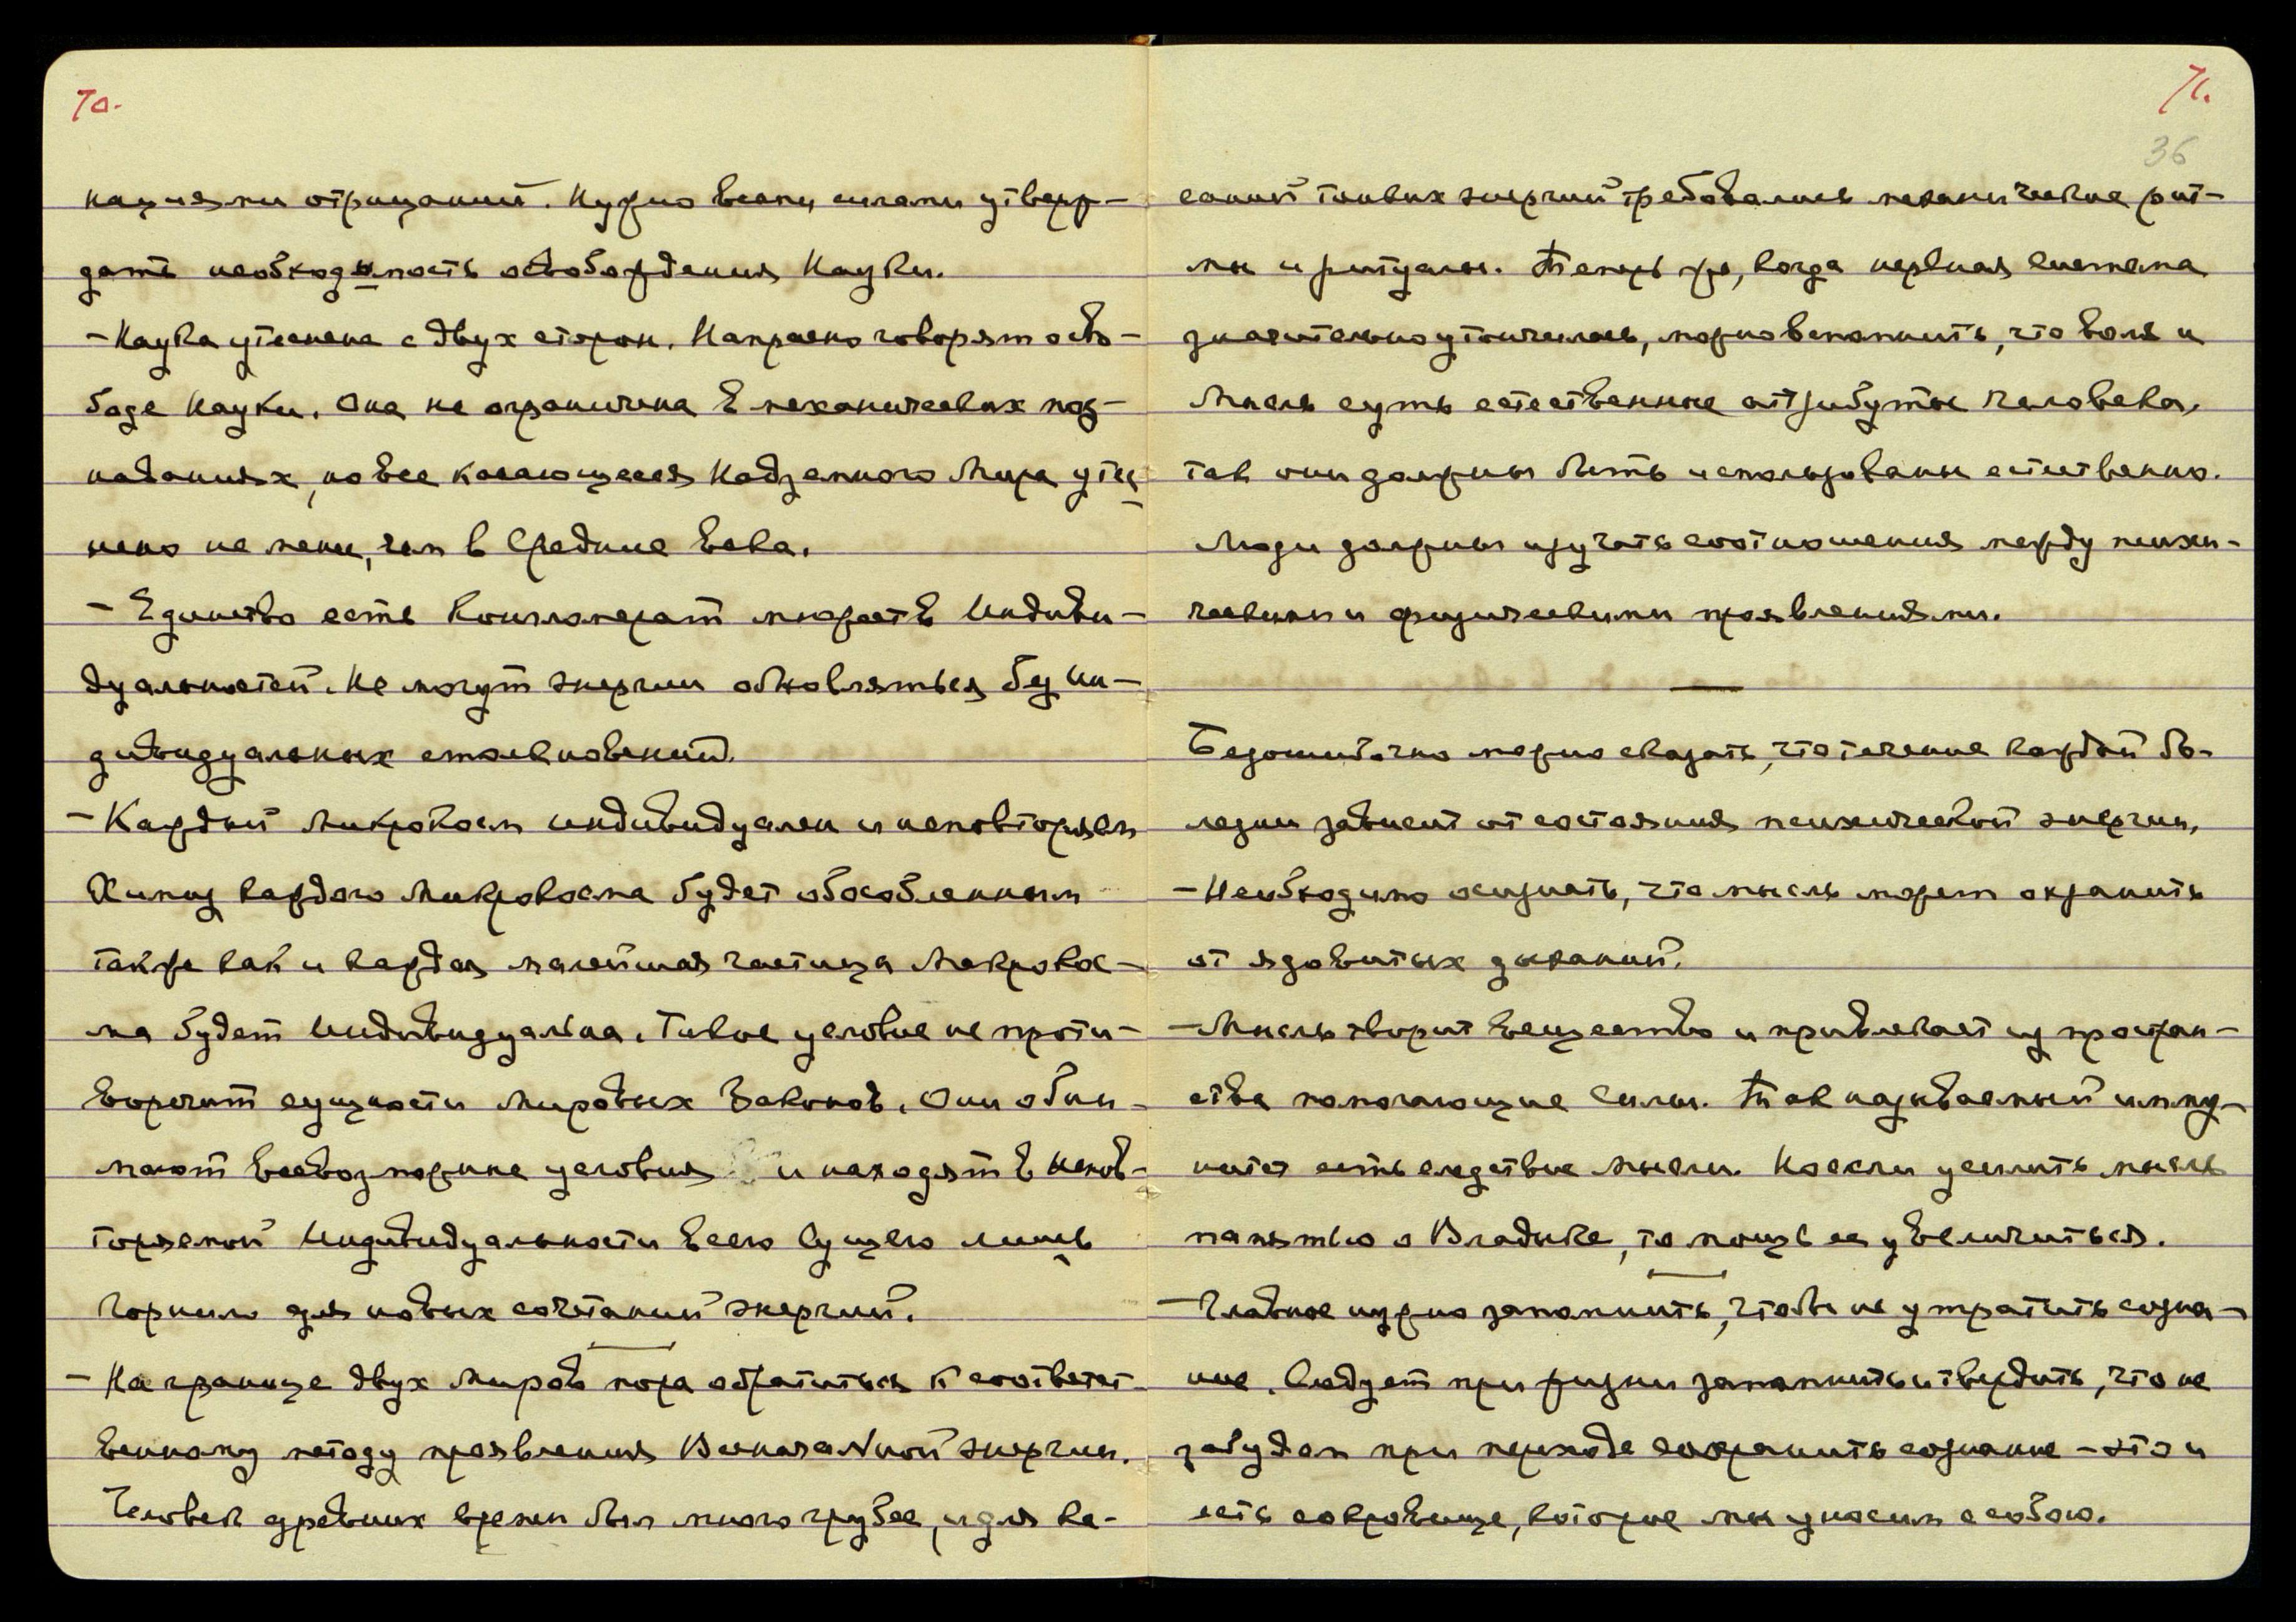 70.
нациями отрицаний. Нужно всеми силами утверж-
дать необходимость освобождения Науки.
- Наука утеснена с двух сторон. Напрасно говорят о сво-
боде Науки. Она не ограничена в механических поз-
наваниях, но все касающееся Надземного Мира утес
нено не менее, чем в Средние Века.
- Единство есть Конгломерат множеств Индиви-
дуальностей. Не могут энергии обновляться без Ин-
дивидуальных столкновений.
- Каждый Микрокосм индивидуален и неповторяем
Химизм каждого Микрокосма будет обособленным
также как и каждая малейшая частица Макрокос-
ма будет Индивидуальна. Такое условие не проти-
воречит сущности Мировых Законов. Они обни-
мают всевозможные условия и находят в Непов-
торяемой Индивидуальности всего Сущего лишь
Горнило для новых сочетаний энергий.
- На границе двух Миров пора обратиться к соответст
венному методу проявления Всеначальной энергии.
Человек древних времен был много грубее, и для ка-
71.
36
саний тонких энергий требовались механические рит-
мы и ритуалы. Теперь же, когда нервная система
значительно утончилась, можно вспомнить, что воля и
Мысль суть естественные аттрибуты Человека,
так они должны быть использованы естественно.
Люди должны изучать соотношения между психи-
ческими и физическими проявлениями.
Безошибочно можно сказать, что течение каждой бо-
лезни зависит от состояния психической энергии,
- Необходимо осознать, что мысль может охранить
от ядовитых дыханий.
- Мысль творит Вещество и привлекает из простран-
ства помогающие Силы. Так называемый имму-
нитет есть следствие мысли. Но если усилить мысль
памятью о Владыке, то мощь ее увеличиться.
- Главное нужно запомнить, чтобы не утратить созна-
ние. Следует при жизни запомнить и твердить, что не
забудем при переходе сохранить сознание - это и
есть сокровище, которое мы уносим с собою.